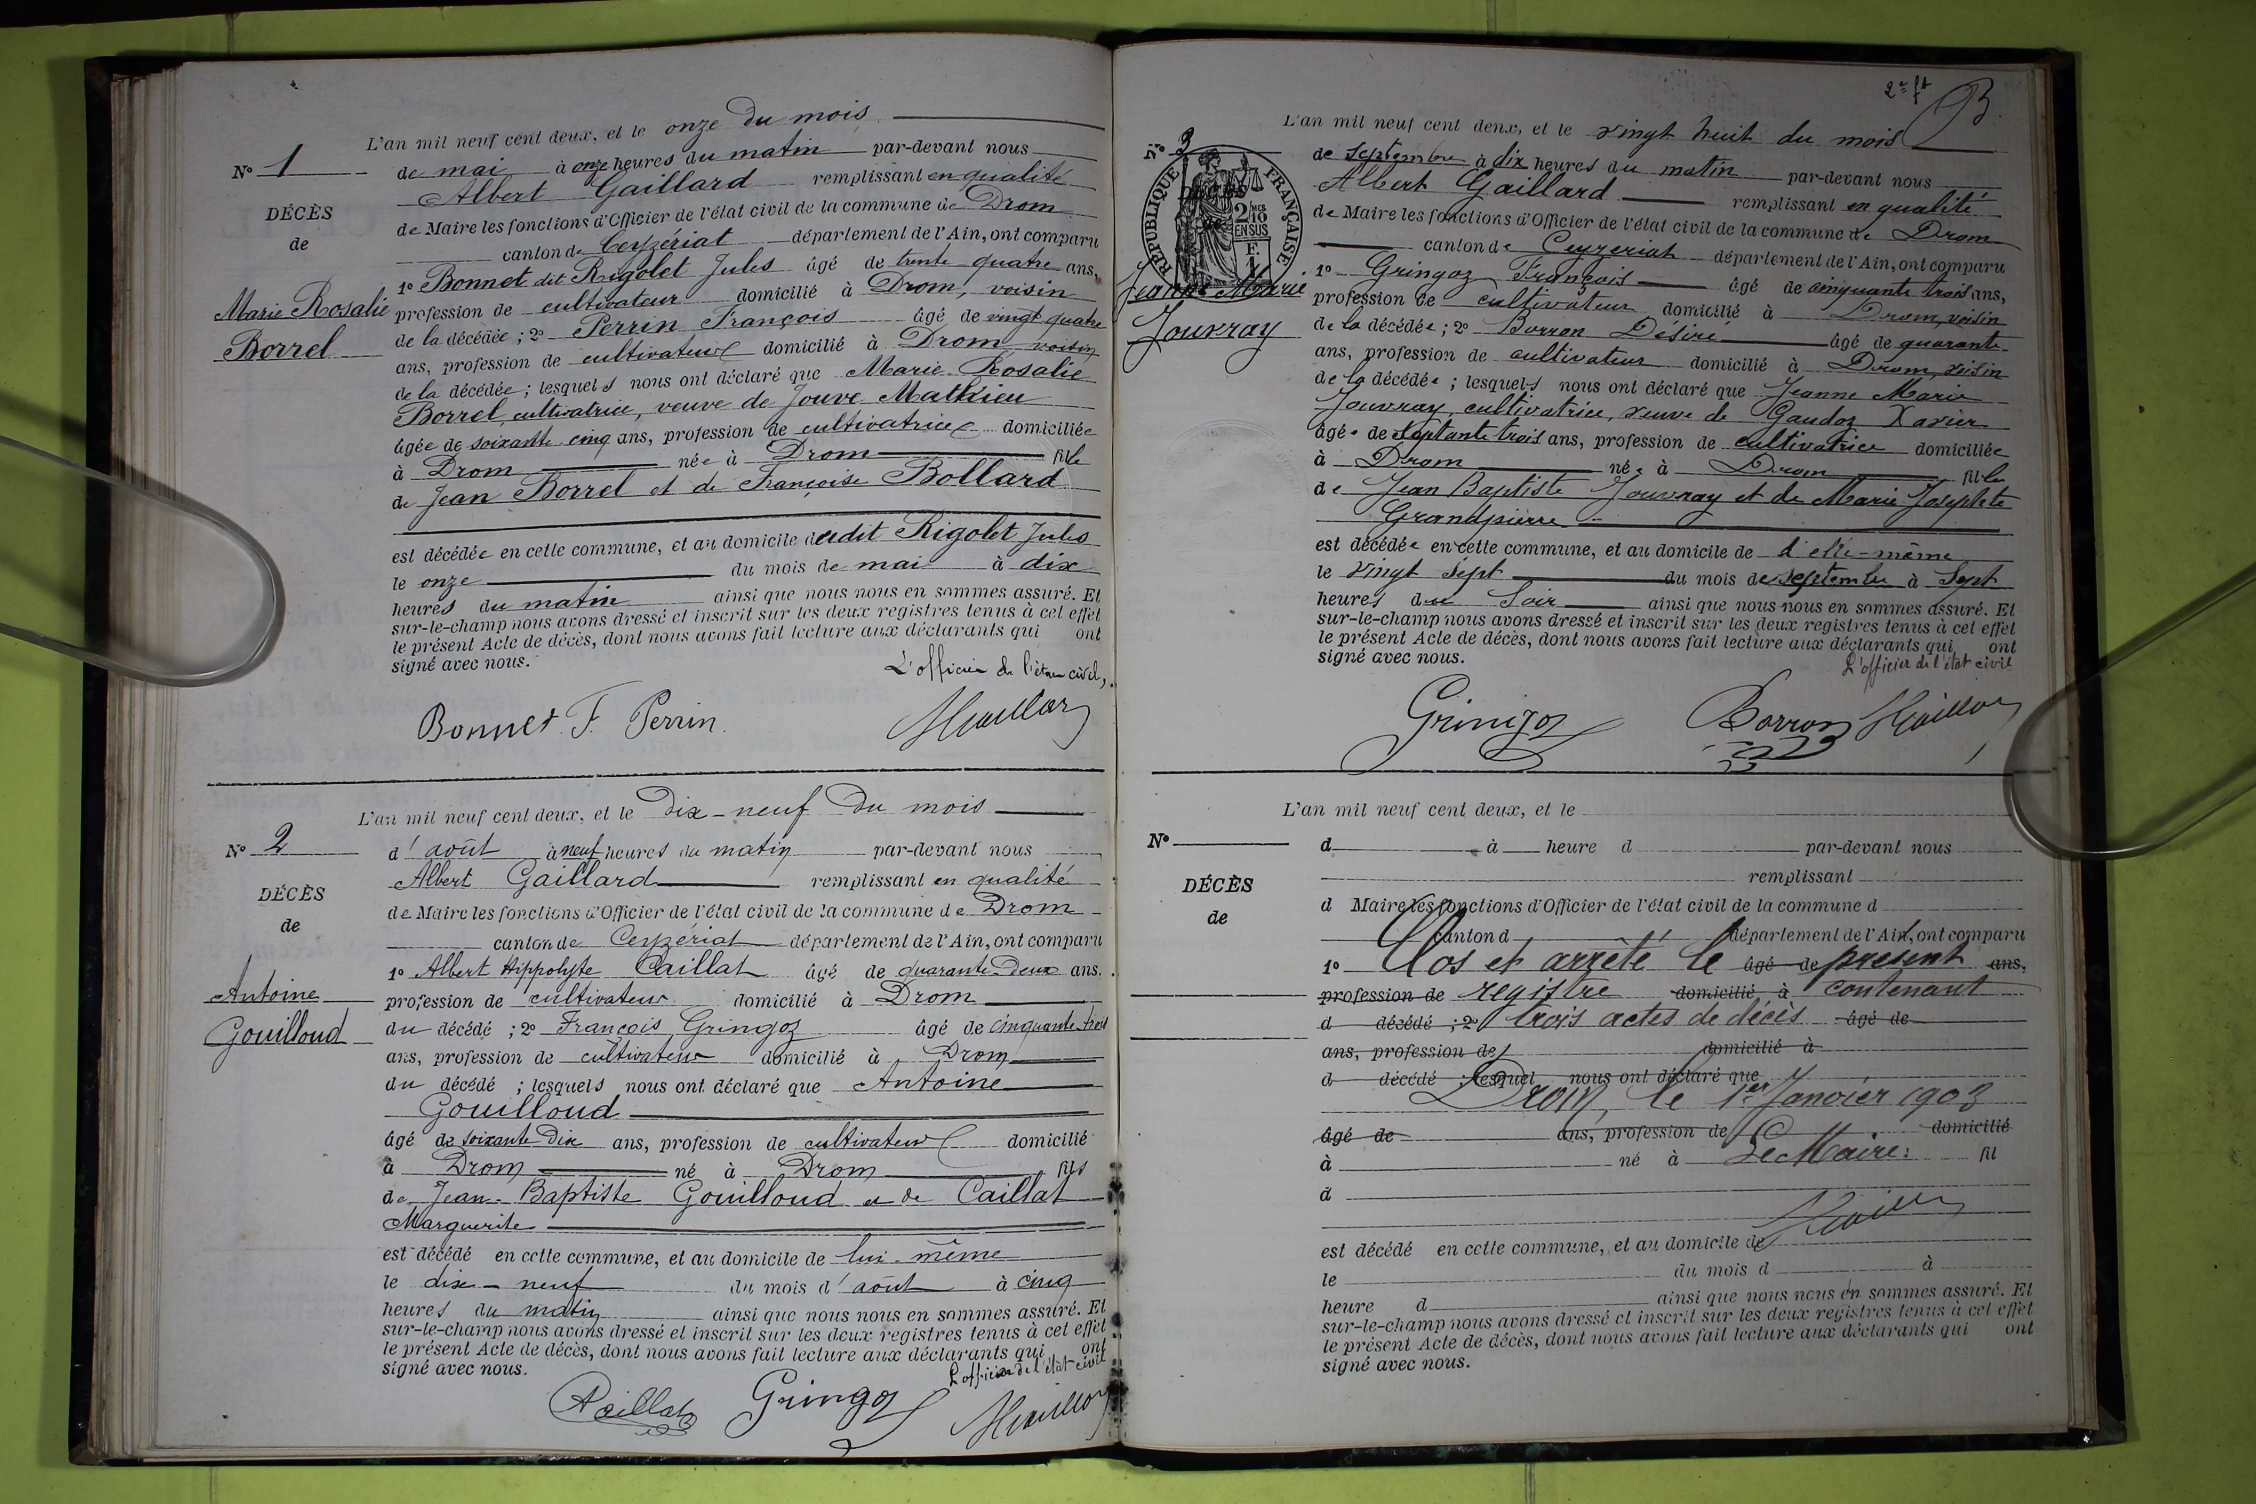 L'an mil neuf cent deux, et le onze du mois
N° 1
de mai à onze heures du matin par-devant nous
Albert Gaillard remplissant en qualité
DÉCÈS
de Maire les fonctions d'Officier de l'état civil de la commune de Drom
de
canton de Ceyzériat département de l'Ain, ont comparu
1° Bonnet dit Rigolet Jules âgé de trente quatre ans,
Marie Rosalie
profession de cultivateur domicilié à Drom, voisin
Borrel
de la décédée ; 2° Perrin François âgé de vingt quatre
ans, profession de cultivateur domicilié à Drom voisin
de la décédée ; lesquels nous ont déclaré que Marie Rosalie
Borrel, cultivatrice, veuve de Jouve Mathieu
âgée de soixante cinq ans, profession de cultivatrice domiciliée
à Drom née à Drom fille
de Jean Borrel et de Françoise Bollard
est décédée en cette commune, et au domicile dudit Rigolet Jules
le onze du mois de mai à dix
heures du matin ainsi que nous nous en sommes assuré. Et
sur-le-champ nous avons dressé et inscrit sur les deux registres tenus à cet effet
le présent Acte de décès, dont nous avons fait lecture aux déclarants qui ont
signé avec nous.
L'officier de l'état civil,
Bonnet F. Perrin
L'an mil neuf cent deux, et le Dix-neuf Du mois
N° 2
d'août à neuf heures du matin par-devant nous
Albert Gaillard remplissant en qualité
DÉCÈS
de Maire les fonctions d'Officier de l'état civil de la commune de Drom
de
canton de Ceyzériat département de l'Ain, ont comparu
1° Albert Hippolyte Caillat âgé de quarante-Deux ans.
Antoine
profession de cultivateur domicilié à Drom
Gouilloud
du décédé ; 2° François Gringoz âgé de cinquante trois
ans, profession de cultivateur domicilié à Drom
du décédé ; lesquels nous ont déclaré que Antoine
Gouilloud
âgé de soixante Dix ans, profession de cultivateur domicilié
à Drom né à Drom fils
de Jean-Baptiste Gouilloud et de Caillat
Marguerite
est décédé en cette commune, et au domicile de lui-même
le dix-neuf du mois d'août à cinq
heures du matin ainsi que nous nous en sommes assuré. Et
sur-le-champ nous avons dressé et inscrit sur les deux registres tenus à cet effet
le présent Acte de décès, dont nous avons fait lecture aux déclarants qui ont
signé avec nous.
L'officier de l'état civil
A Caillat Gringoz
2e ft
L'an mil neuf cent deux, et le vingt huit du mois
N° 3
de septembre à dix heures du matin par-devant nous
Albert Gaillard remplissant en qualité
RÉPUBLIQUE FRANÇAISE
2/10 MES EN SUS
de Maire les fonctions d'Officier de l'état civil de la commune de Drom
canton de Ceyzeriat département de l'Ain, ont comparu
1° Gringoz François âgé de cinquante trois ans,
Jeanne Marie
profession de cultivateur domicilié à Drom, voisin
Jouvray
de la décédée ; 2° Borron Désiré âgé de quarante
ans, profession de cultivateur domicilié à Drom, voisin
de la décédée ; lesquels nous ont déclaré que Jeanne Marie
Jouvray, cultivatrice, veuve de Gaudoz Xavier
âgée de septante trois ans, profession de cultivatrice domiciliée
à Drom née à Drom fille
de Jean Baptiste Jouvray et de Marie Josephte
Grandpierre
est décédée en cette commune, et au domicile de d'elle-même
le vingt sept du mois de septembre à sept
heures du soir ainsi que nous nous en sommes assuré. Et
sur-le-champ nous avons dressé et inscrit sur les deux registres tenus à cet effet
le présent Acte de décès, dont nous avons fait lecture aux déclarants qui ont
signé avec nous.
L'officier de l'état civil
Gringoz Borron
L'an mil neuf cent deux, et le
N°
d à heure d par-devant nous
remplissant
DÉCÈS
d Maire les fonctions d'Officier de l'état civil de la commune d
de
canton d département de l'Ain, ont comparu
1° Clos et arrêté le âgé de présent ans,
profession de registre domicilié à contenant
d décédé ; 2° trois actes de décès âgé de
ans, profession de domicilié à
d décédé ; lesquel nous ont déclaré que
Drom, le 1er Janvier 1903
âgé de ans, profession de domicilié
à né à Le Maire: fil
d
est décédé en cette commune, et au domicile de
le du mois d à
heure d ainsi que nous nous en sommes assuré. Et
sur-le-champ nous avons dressé et inscrit sur les deux registres tenus à cet effet
le présent Acte de décès, dont nous avons fait lecture aux déclarants qui ont
signé avec nous.